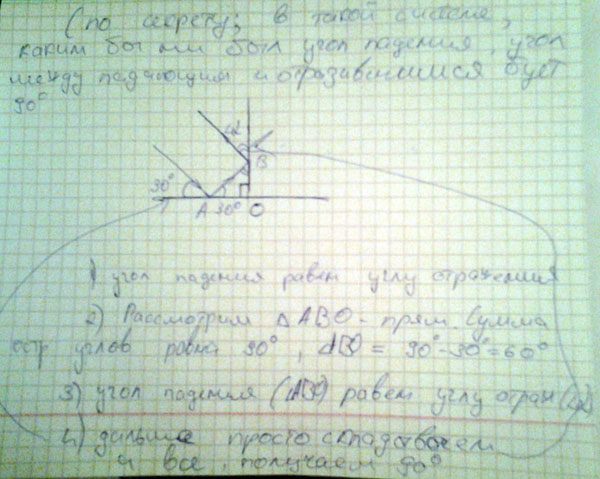 (по секрету, в такой системе,
каким бы ни был угол падения, угол
между падающим и отразившимся бует
90°
∠α
B
30°
A 30° O
1) угол падения равен углу отражения
2) Рассмотрим △ABO - прям. Сумма
остр углов равна 90°, = 90°-30°=60°
3) угол падения ( ) равен углу отраж (∠α)
4) дальше просто складываем
и все, получаем 90°